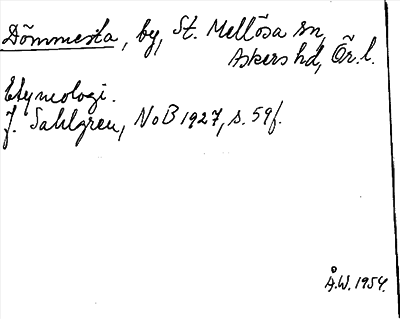 Dömmesta, by, St. Mellösa sn,
Askers hd, Ör. l.
Etymologi.
J. Sahlgren, NoB 1927, s. 59f.
Å.W. 1954.